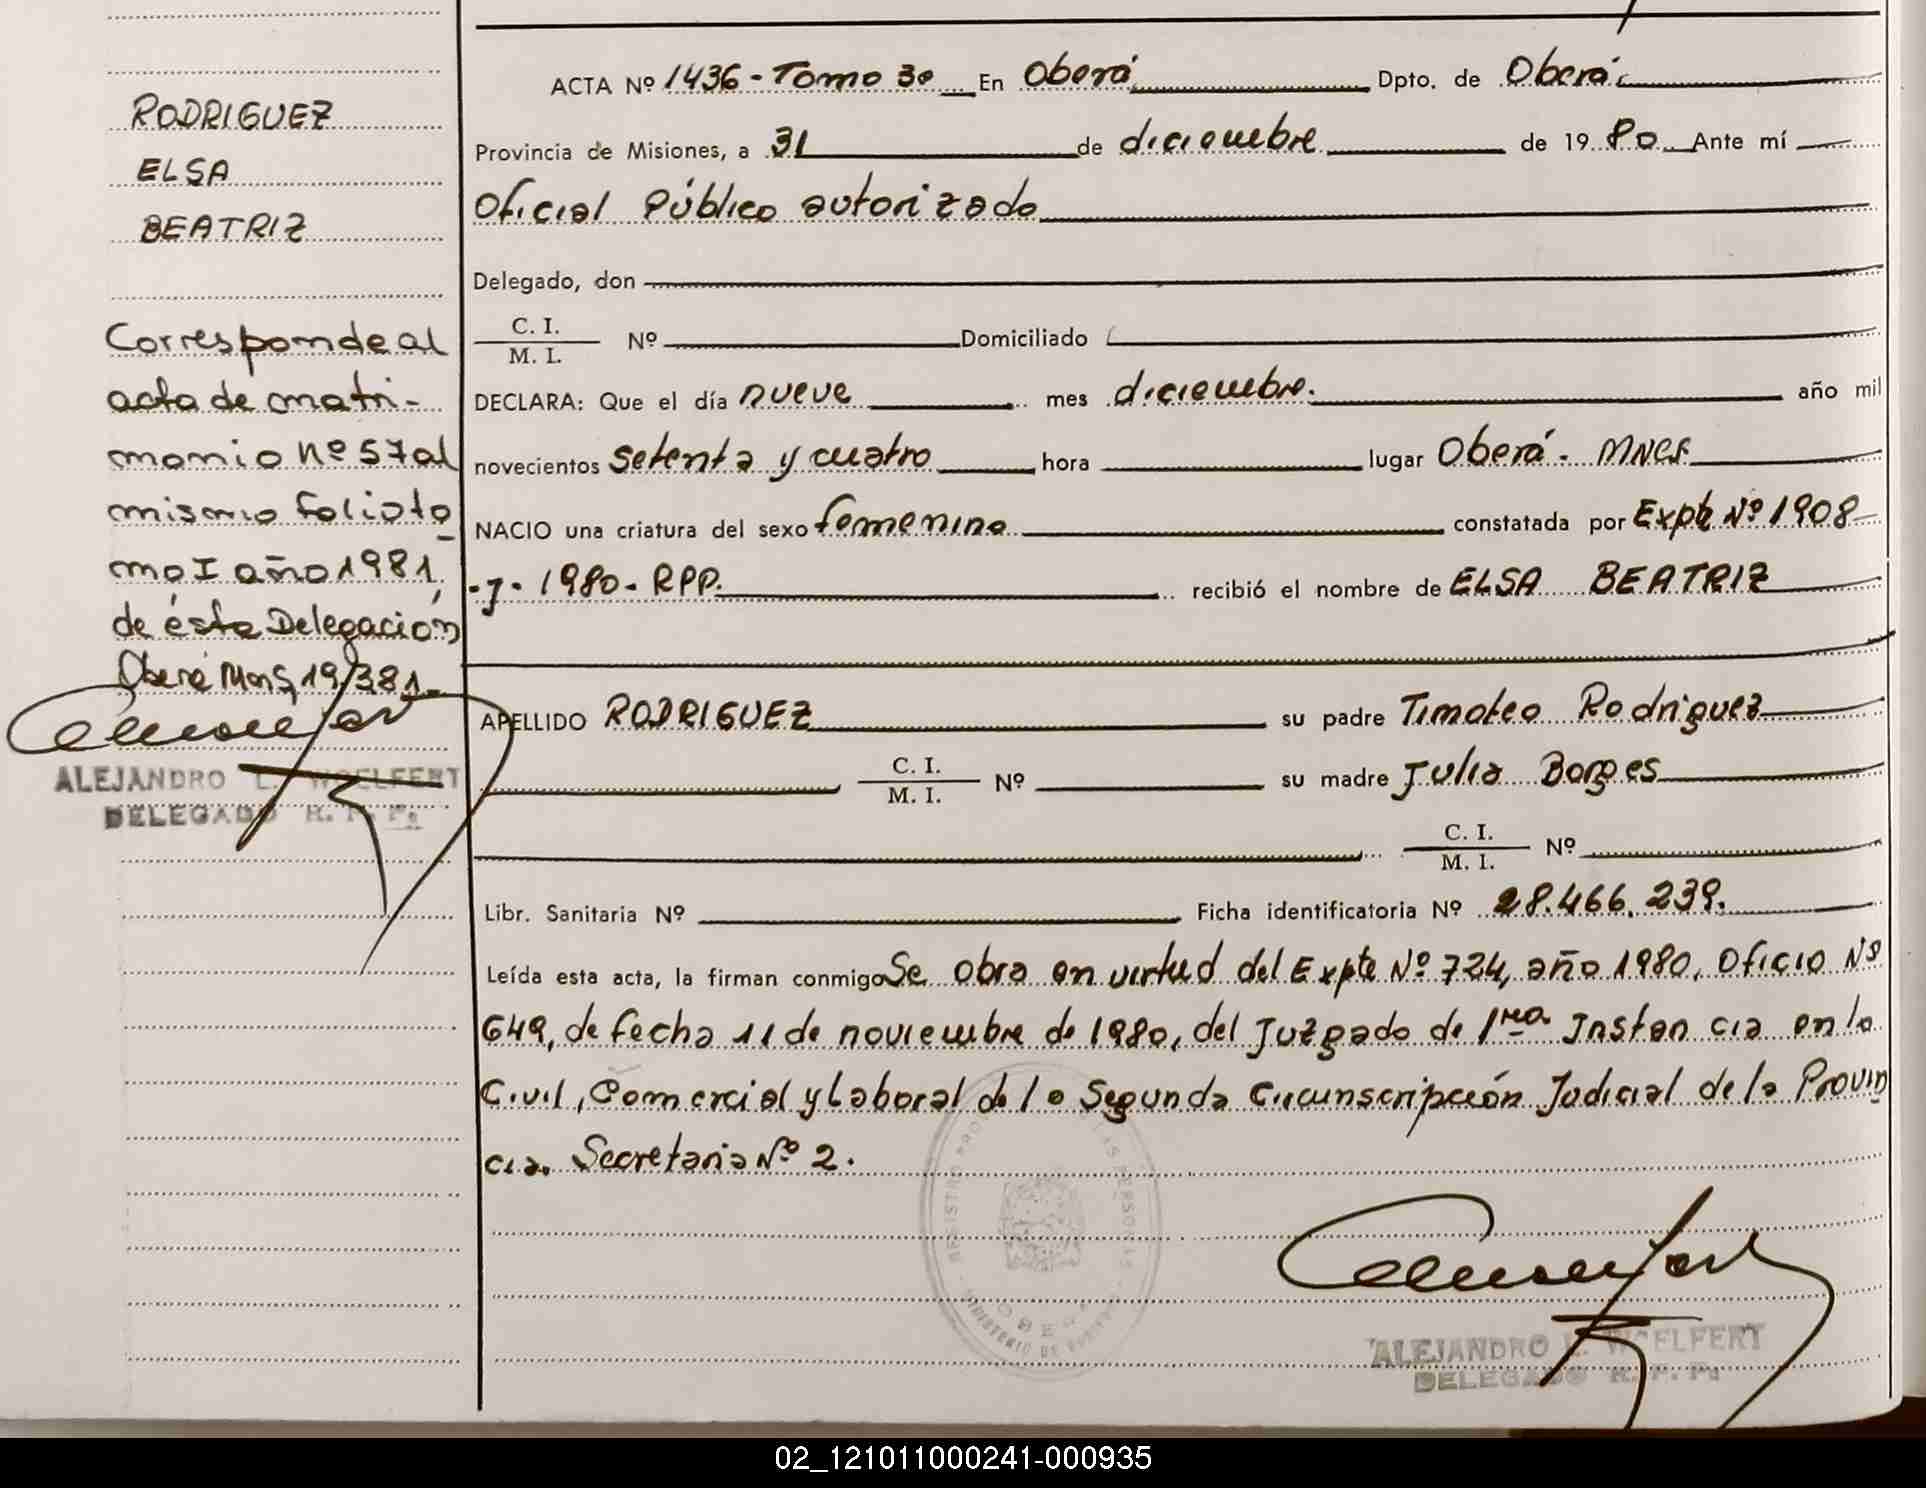 RODRIGUEZ
ELSA
BEATRIZ
Corresponde al
acta de matri-
monio Nº 57 al
mismo folio to
mo I año 1981,
de ésta Delegación
Oberá Mns, 19/3 81.
ALEJANDRO L. WOELFERT
DELEGADO R. P. P.
ACTA Nº 1436 - Tomo 3º En Oberá Dpto. de Oberá
Provincia de Misiones, a 31 de diciembre de 19 80 Ante mí
Oficial Público autorizado
Delegado, don
C. I.
M. I. Nº Domiciliado
DECLARA: Que el día nueve mes diciembre. año mil
novecientos setenta y cuatro hora lugar Oberá - MNES
NACIO una criatura del sexo femenino constatada por Expte Nº 1908
-J- 1980 - RPP. recibió el nombre de ELSA BEATRIZ
APELLIDO RODRIGUEZ su padre Timoteo Rodriguez
C. I.
M. I. Nº su madre Julia Borges
C. I.
M. I. Nº
Libr. Sanitaria Nº Ficha identificatoria Nº 28.466.239.
Leída esta acta, la firman conmigo Se obra en virtud del Expte Nº 724, año 1980, Oficio Nº
649, de fecha 11 de noviembre de 1980, del Juzgado de 1ra Instancia en lo
Civil, Comercial y Laboral de la Segunda Circunscripción Judicial de la Provin
cia. Secretaria Nº 2.
ALEJANDRO L. WOELFERT
DELEGADO R. P. P.
02_121011000241-000935